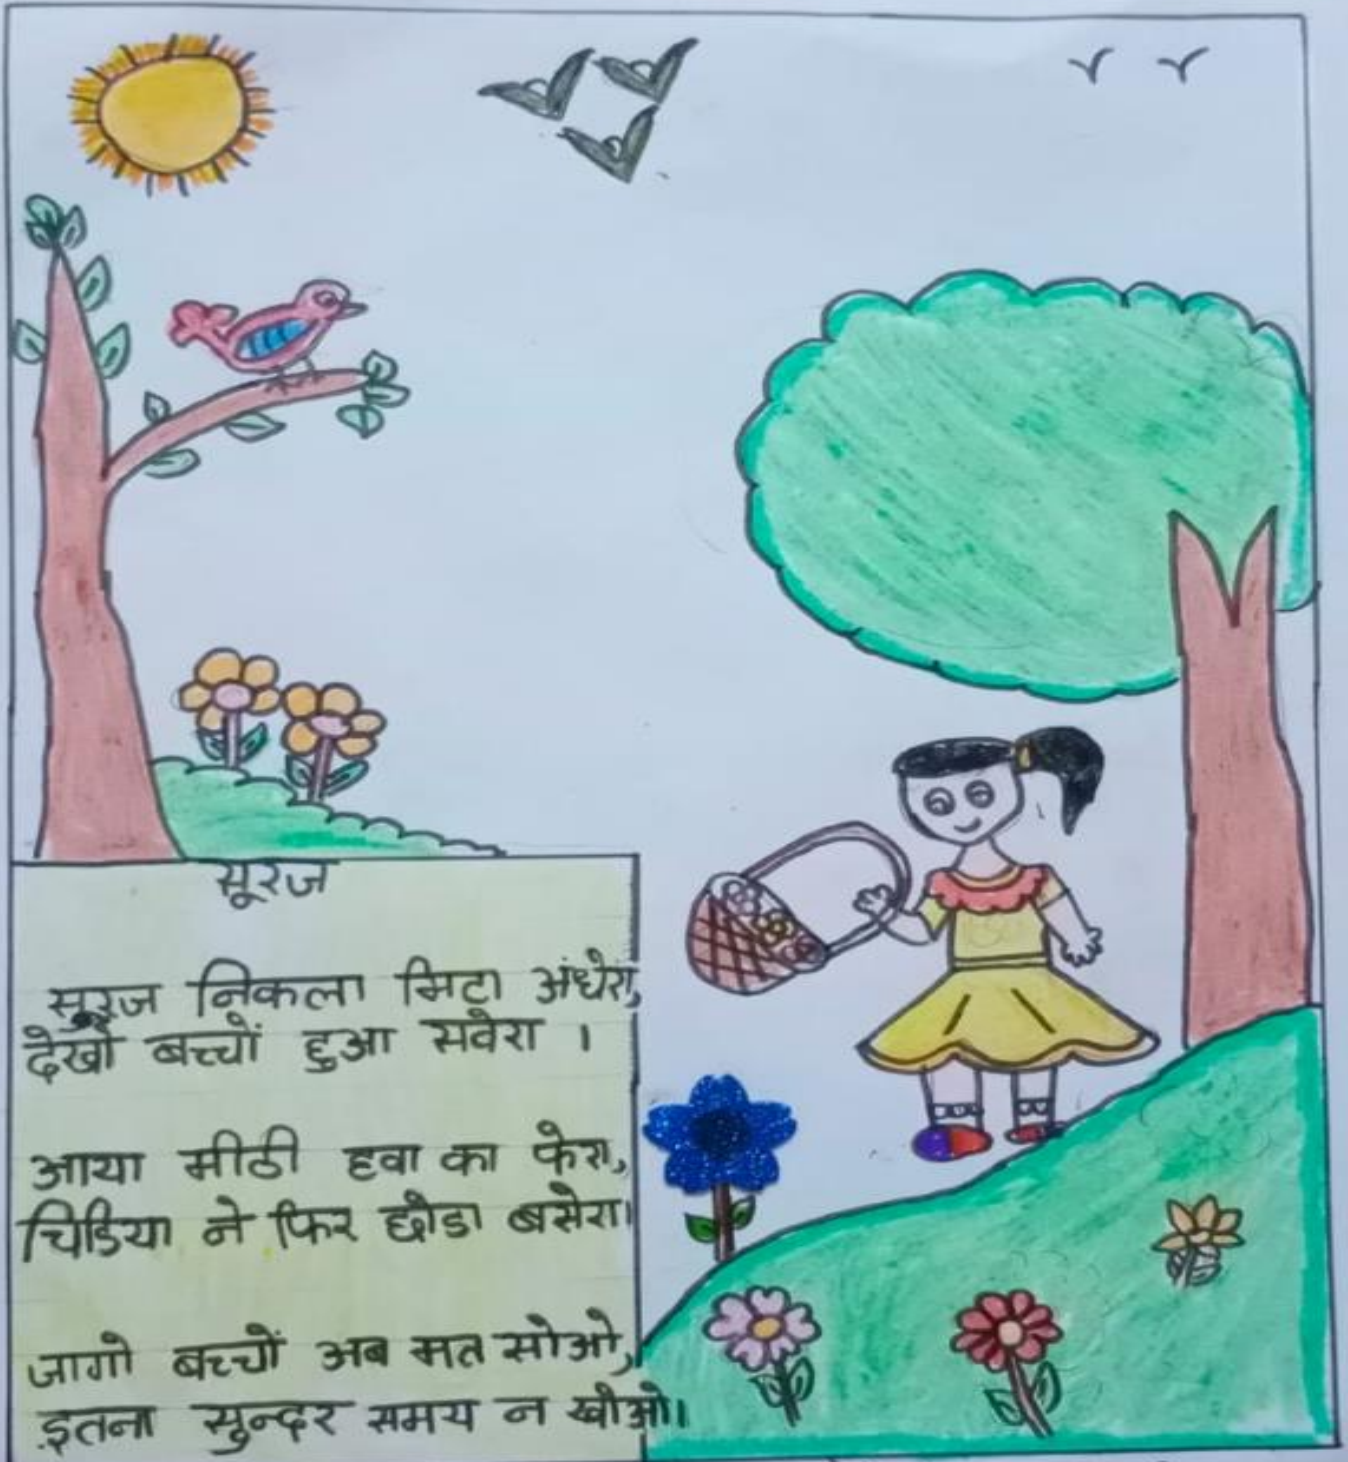 सूरज
सूरज निकला मिटा अंधेरा,
देखो बच्चों हुआ सवेरा ।
आया मीठी हवा का फेरा,
चिडिया ने फिर छोडा बसेरा।
जागो बच्चों अब मत सोओ,
इतना सुन्दर समय न खोओ।